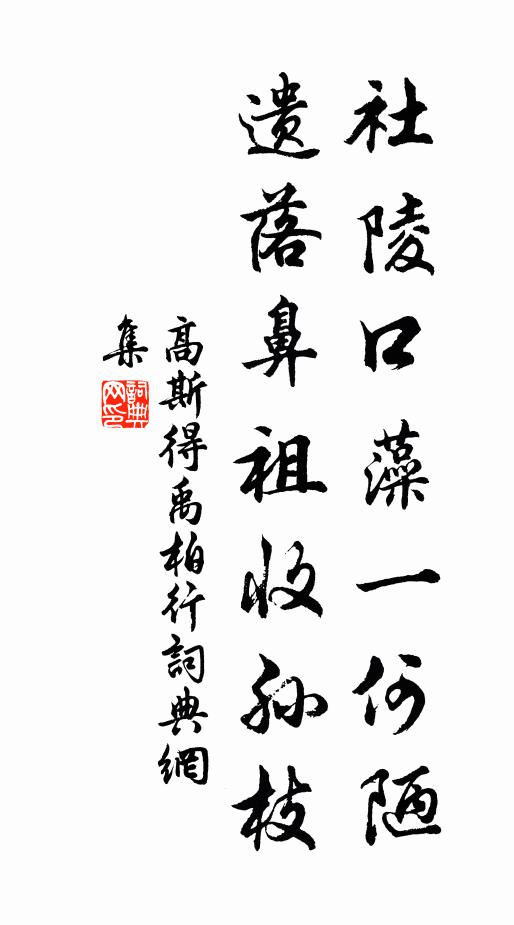 社陵口藻一何陋
遗落鼻祖收孙枝
高斯得禹柏行詞典網
集
詞典網印